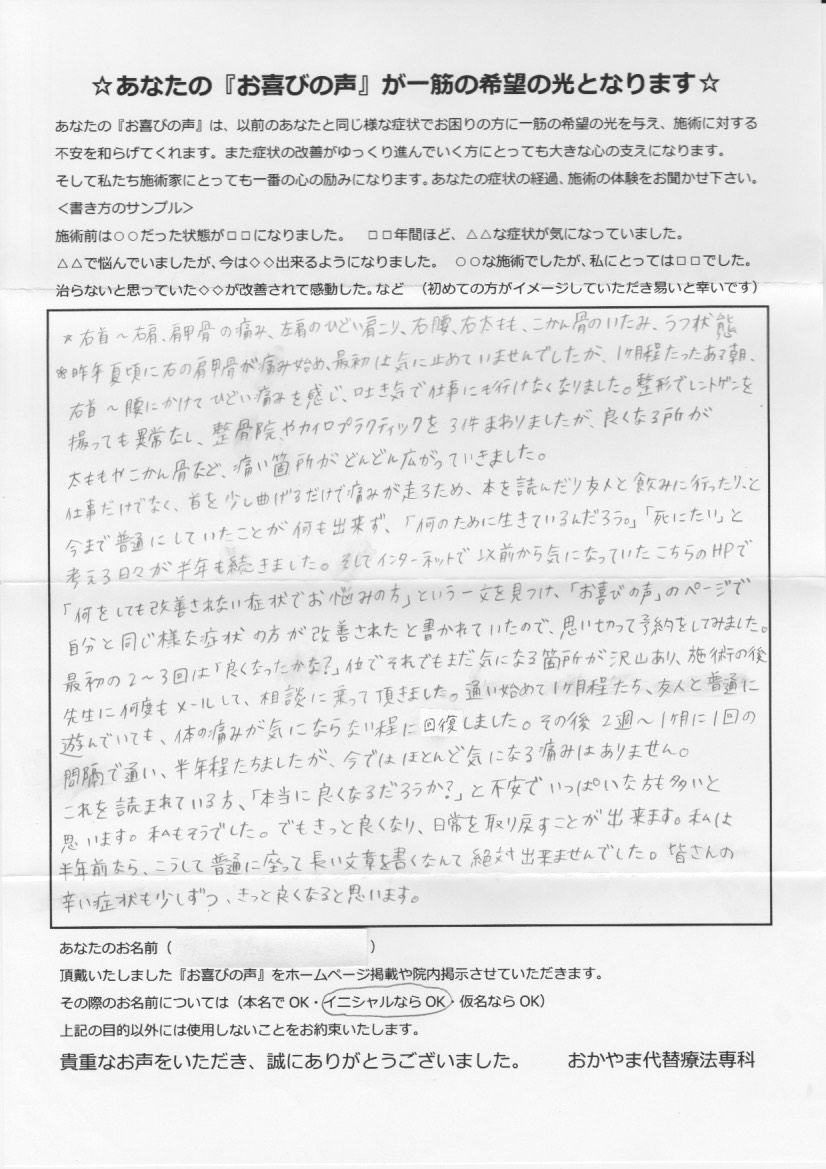 ☆あなたの『お喜びの声』が一筋の希望の光となります☆
あなたの『お喜びの声』は、以前のあなたと同じ様な症状でお困りの方に一筋の希望の光を与え、施術に対する
不安を和らげてくれます。また症状の改善がゆっくり進んでいく方にとっても大きな心の支えになります。
そして私たち施術家にとっても一番の心の励みになります。あなたの症状の経過、施術の体験をお聞かせ下さい。
＜書き方のサンプル＞
施術前は○○だった状態が□□になりました。　□□年間ほど、△△な症状が気になっていました。
△△で悩んでいましたが、今は◇◇出来るようになりました。　○○な施術でしたが、私にとっては□□でした。
治らないと思っていた◇◇が改善されて感動した。など　（初めての方がイメージしていただき易いと幸いです）
*右首～右肩、肩甲骨の痛み、左肩のひどい肩こり、右腰、右太もも、こかん骨のいたみ、うつ状態
*昨年夏頃に右の肩甲骨が痛み始め、最初は気に止めていませんでしたが、1ヶ月程たったある朝、
右首～腰にかけてひどい痛みを感じ、吐き気で仕事にも行けなくなりました。整形でレントゲンを
撮っても異常なし、整骨院やカイロプラクティックを3件まわりましたが、良くなる所が
太ももやこかん骨など、痛い箇所がどんどん広がっていきました。
仕事だけでなく、首を少し曲げるだけで痛みが走るため、本を読んだり友人と飲みに行ったり、と
今まで普通にしていたことが何も出来ず、「何のために生きているんだろう。」「死にたい」と
考える日々が半年も続きました。そしてインターネットで以前から気になっていたこちらのHPで
「何をしても改善されない症状でお悩みの方」という一文を見つけ、「お喜びの声」のページで
自分と同じ様な症状の方が改善されたと書かれていたので、思い切って予約をしてみました。
最初の2～3回は「良くなったかな?」位でそれでもまだ気になる箇所が沢山あり、施術の後
先生に何度もメールして、相談に乗って頂きました。通い始めて1ヶ月程たち、友人と普通に
遊んでいても、体の痛みが気にならない程に回復しました。その後2週～1ヶ月に1回の
間隔で通い、半年程たちましたが、今ではほとんど気になる痛みはありません。
これを読まれている方、「本当に良くなるだろうか?」と不安でいっぱいな方も多いと
思います。私もそうでした。でもきっと良くなり、日常を取り戻すことが出来ます。私は
半年前なら、こうして普通に座って長い文章を書くなんて絶対出来ませんでした。皆さんの
辛い症状も少しずつ、きっと良くなると思います。
あなたのお名前（　　　　　　　　　　）
頂戴いたしました『お喜びの声』をホームページ掲載や院内掲示させていただきます。
その際のお名前については（本名でOK・イニシャルならOK・仮名ならOK）
上記の目的以外には使用しないことをお約束いたします。
貴重なお声をいただき、誠にありがとうございました。　　おかやま代替療法専科